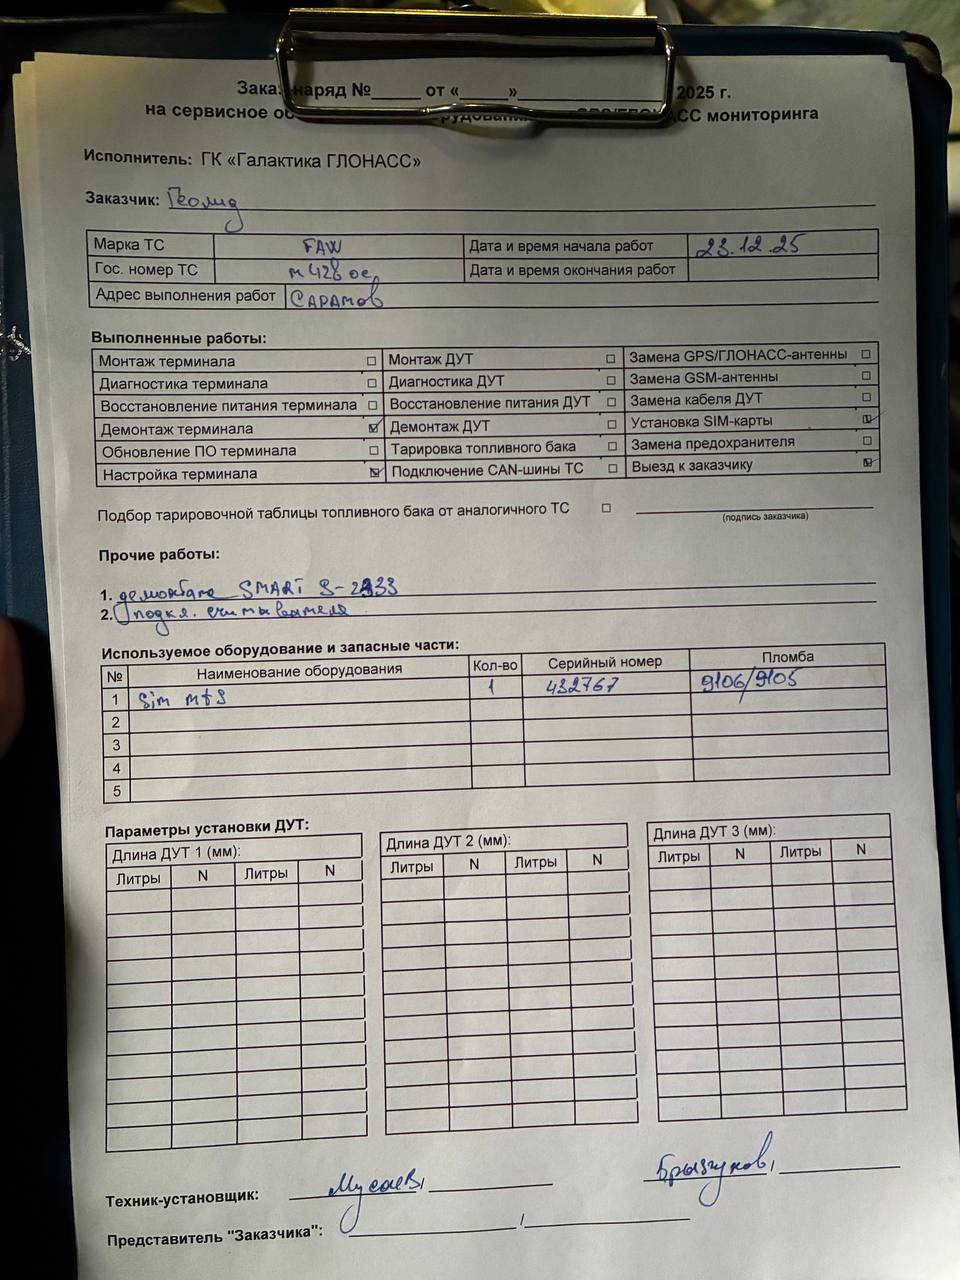 Заказ наряд №_____ от «_____»_____ 2025 г.
на сервисное GPS/ГЛОНАСС мониторинга
Исполнитель: ГК «Галактика ГЛОНАСС»
Заказчик: Геолид
Марка ТС FAW Дата и время начала работ 23.12.25
Гос. номер ТС м 428 ос Дата и время окончания работ
Адрес выполнения работ Саратов
Выполненные работы:
Монтаж терминала ☐ Монтаж ДУТ ☐ Замена GPS/ГЛОНАСС-антенны ☐
Диагностика терминала ☐ Диагностика ДУТ ☐ Замена GSM-антенны ☐
Восстановление питания терминала ☐ Восстановление питания ДУТ ☐ Замена кабеля ДУТ ☐
Демонтаж терминала ☑ Демонтаж ДУТ ☐ Установка SIM-карты ☑
Обновление ПО терминала ☐ Тарировка топливного бака ☐ Замена предохранителя ☐
Настройка терминала ☑ Подключение CAN-шины ТС ☐ Выезд к заказчику ☑
Подбор тарировочной таблицы топливного бака от аналогичного ТС ☐
(подпись заказчика)
Прочие работы:
1. демонтаж SMART S-2433
2. подкл. считывателя
Используемое оборудование и запасные части:
№ Наименование оборудования Кол-во Серийный номер Пломба
1 Sim mts 1 432767 9106/9105
2
3
4
5
Параметры установки ДУТ:
Длина ДУТ 1 (мм): Длина ДУТ 2 (мм): Длина ДУТ 3 (мм):
Литры N Литры N Литры N Литры N Литры N Литры N
Техник-установщик: Мусаев, Брызгунов,
Представитель "Заказчика": /